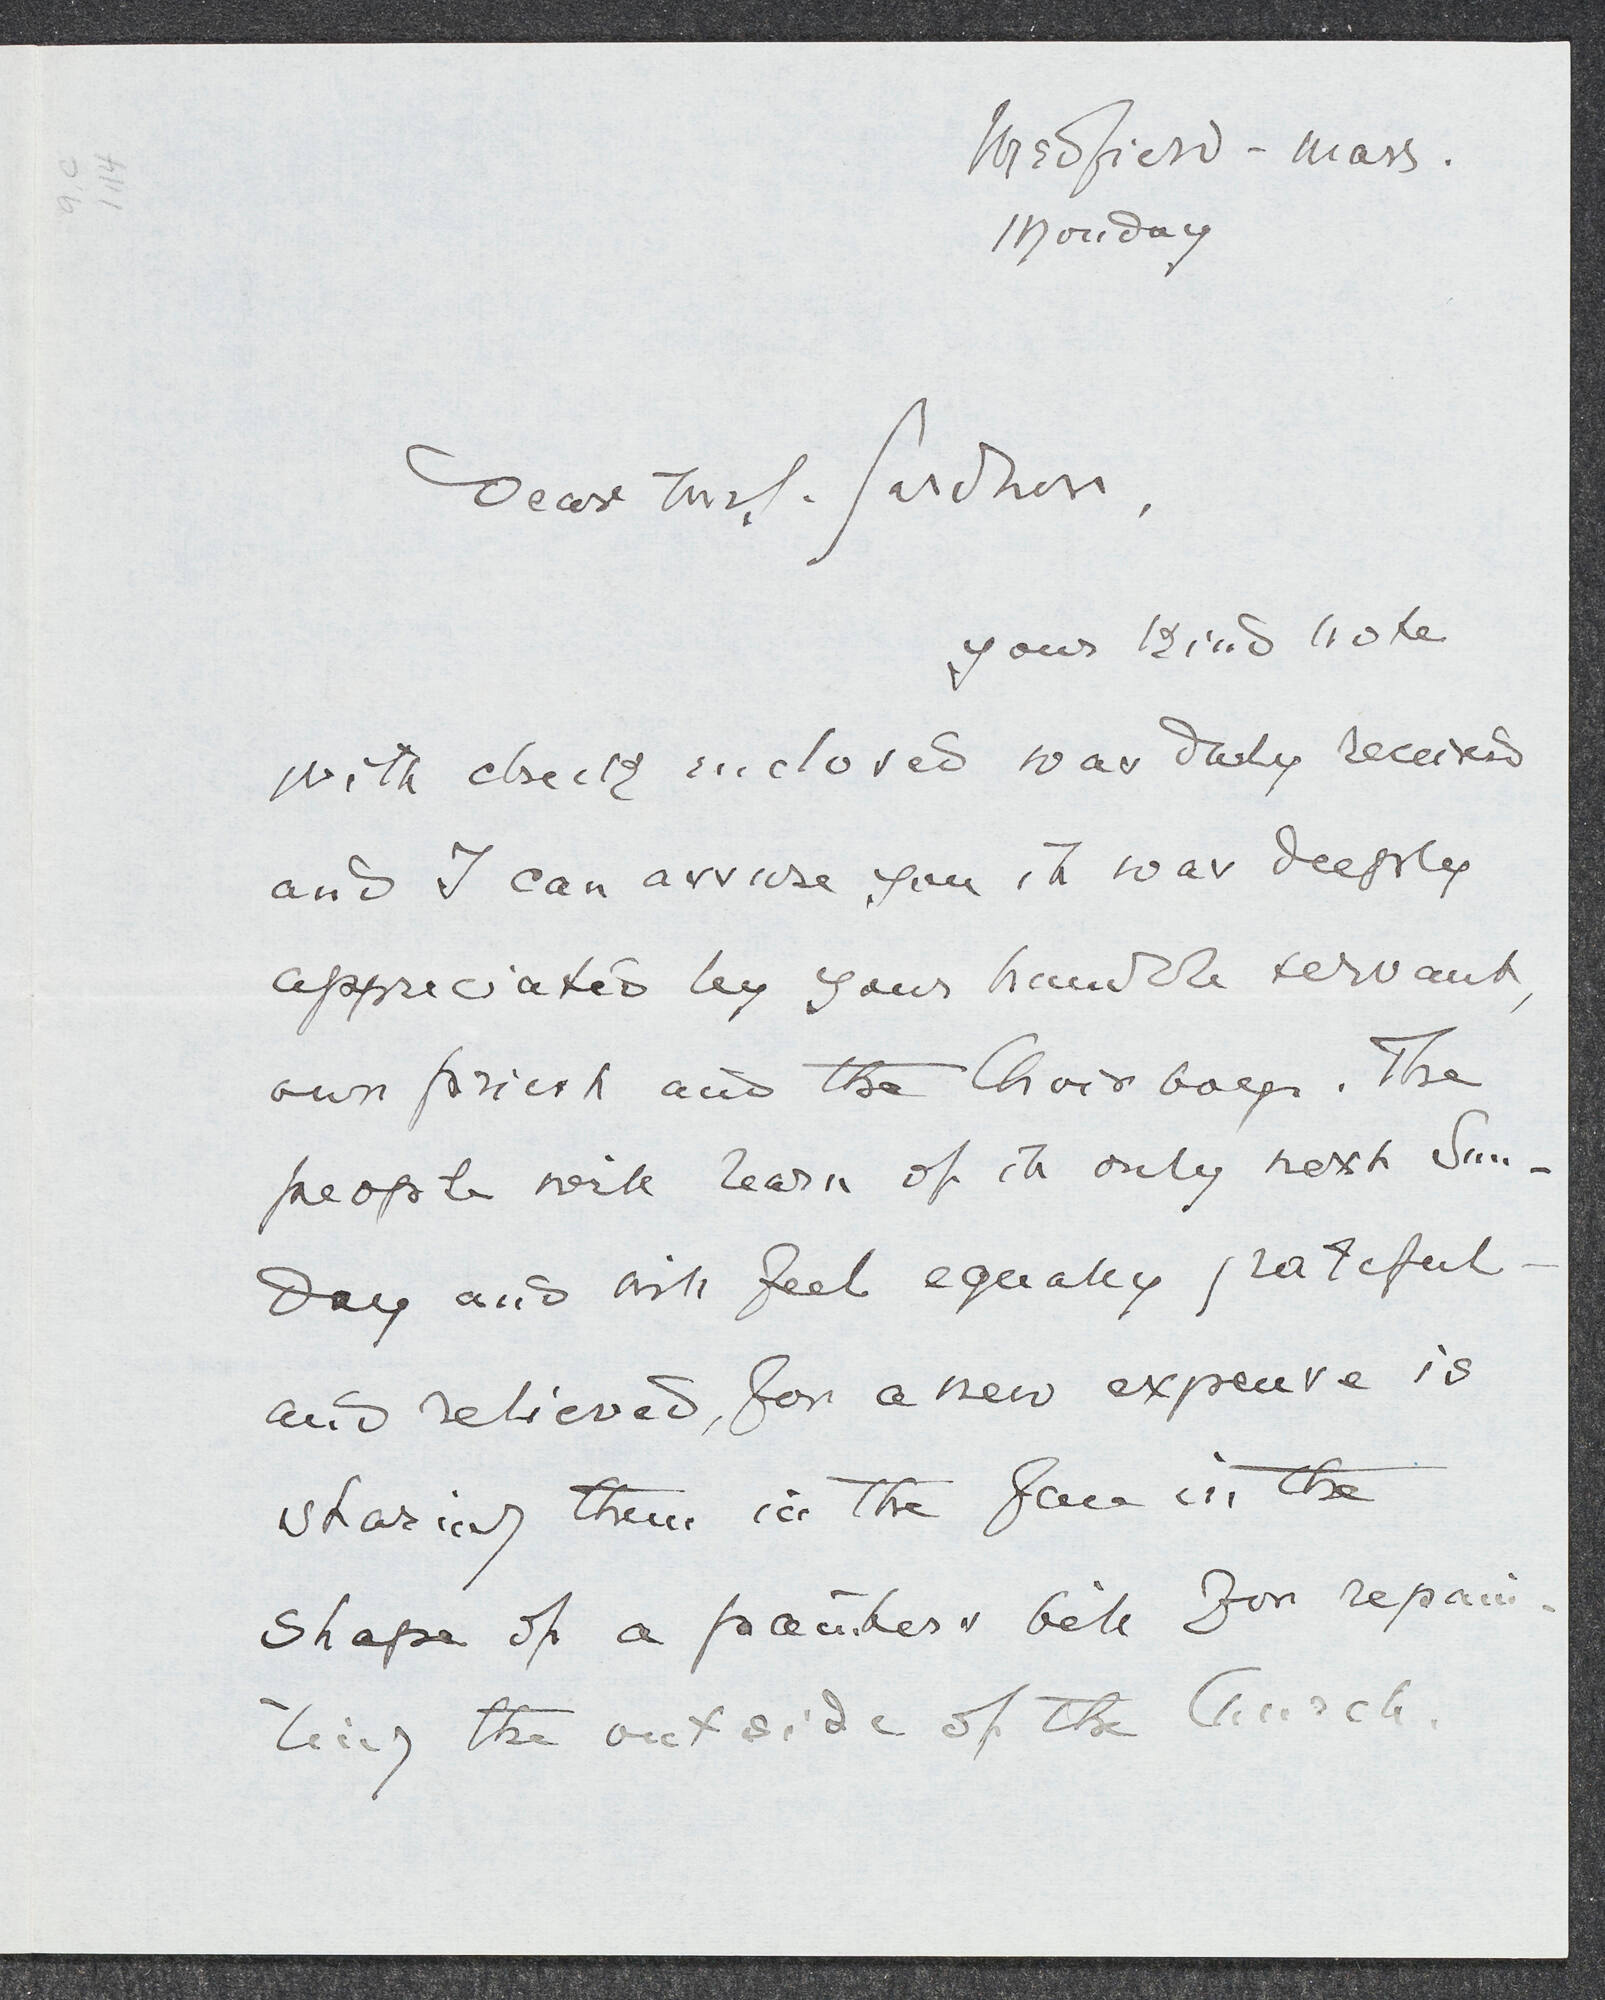 9.C
1114
Medfield - Mass.
Monday
Dear Mrs. Gardner,
your kind note
with check enclosed was duly received
and I can assure you it was deeply
appreciated by your humble servant,
our priest and the Choir boys. The
people will learn of it only next Sun-
day and will feel equally grateful -
and relieved, for a new expense is
staring them in the face in the
shape of a painters bill for repain-
ting the outside of the Church.